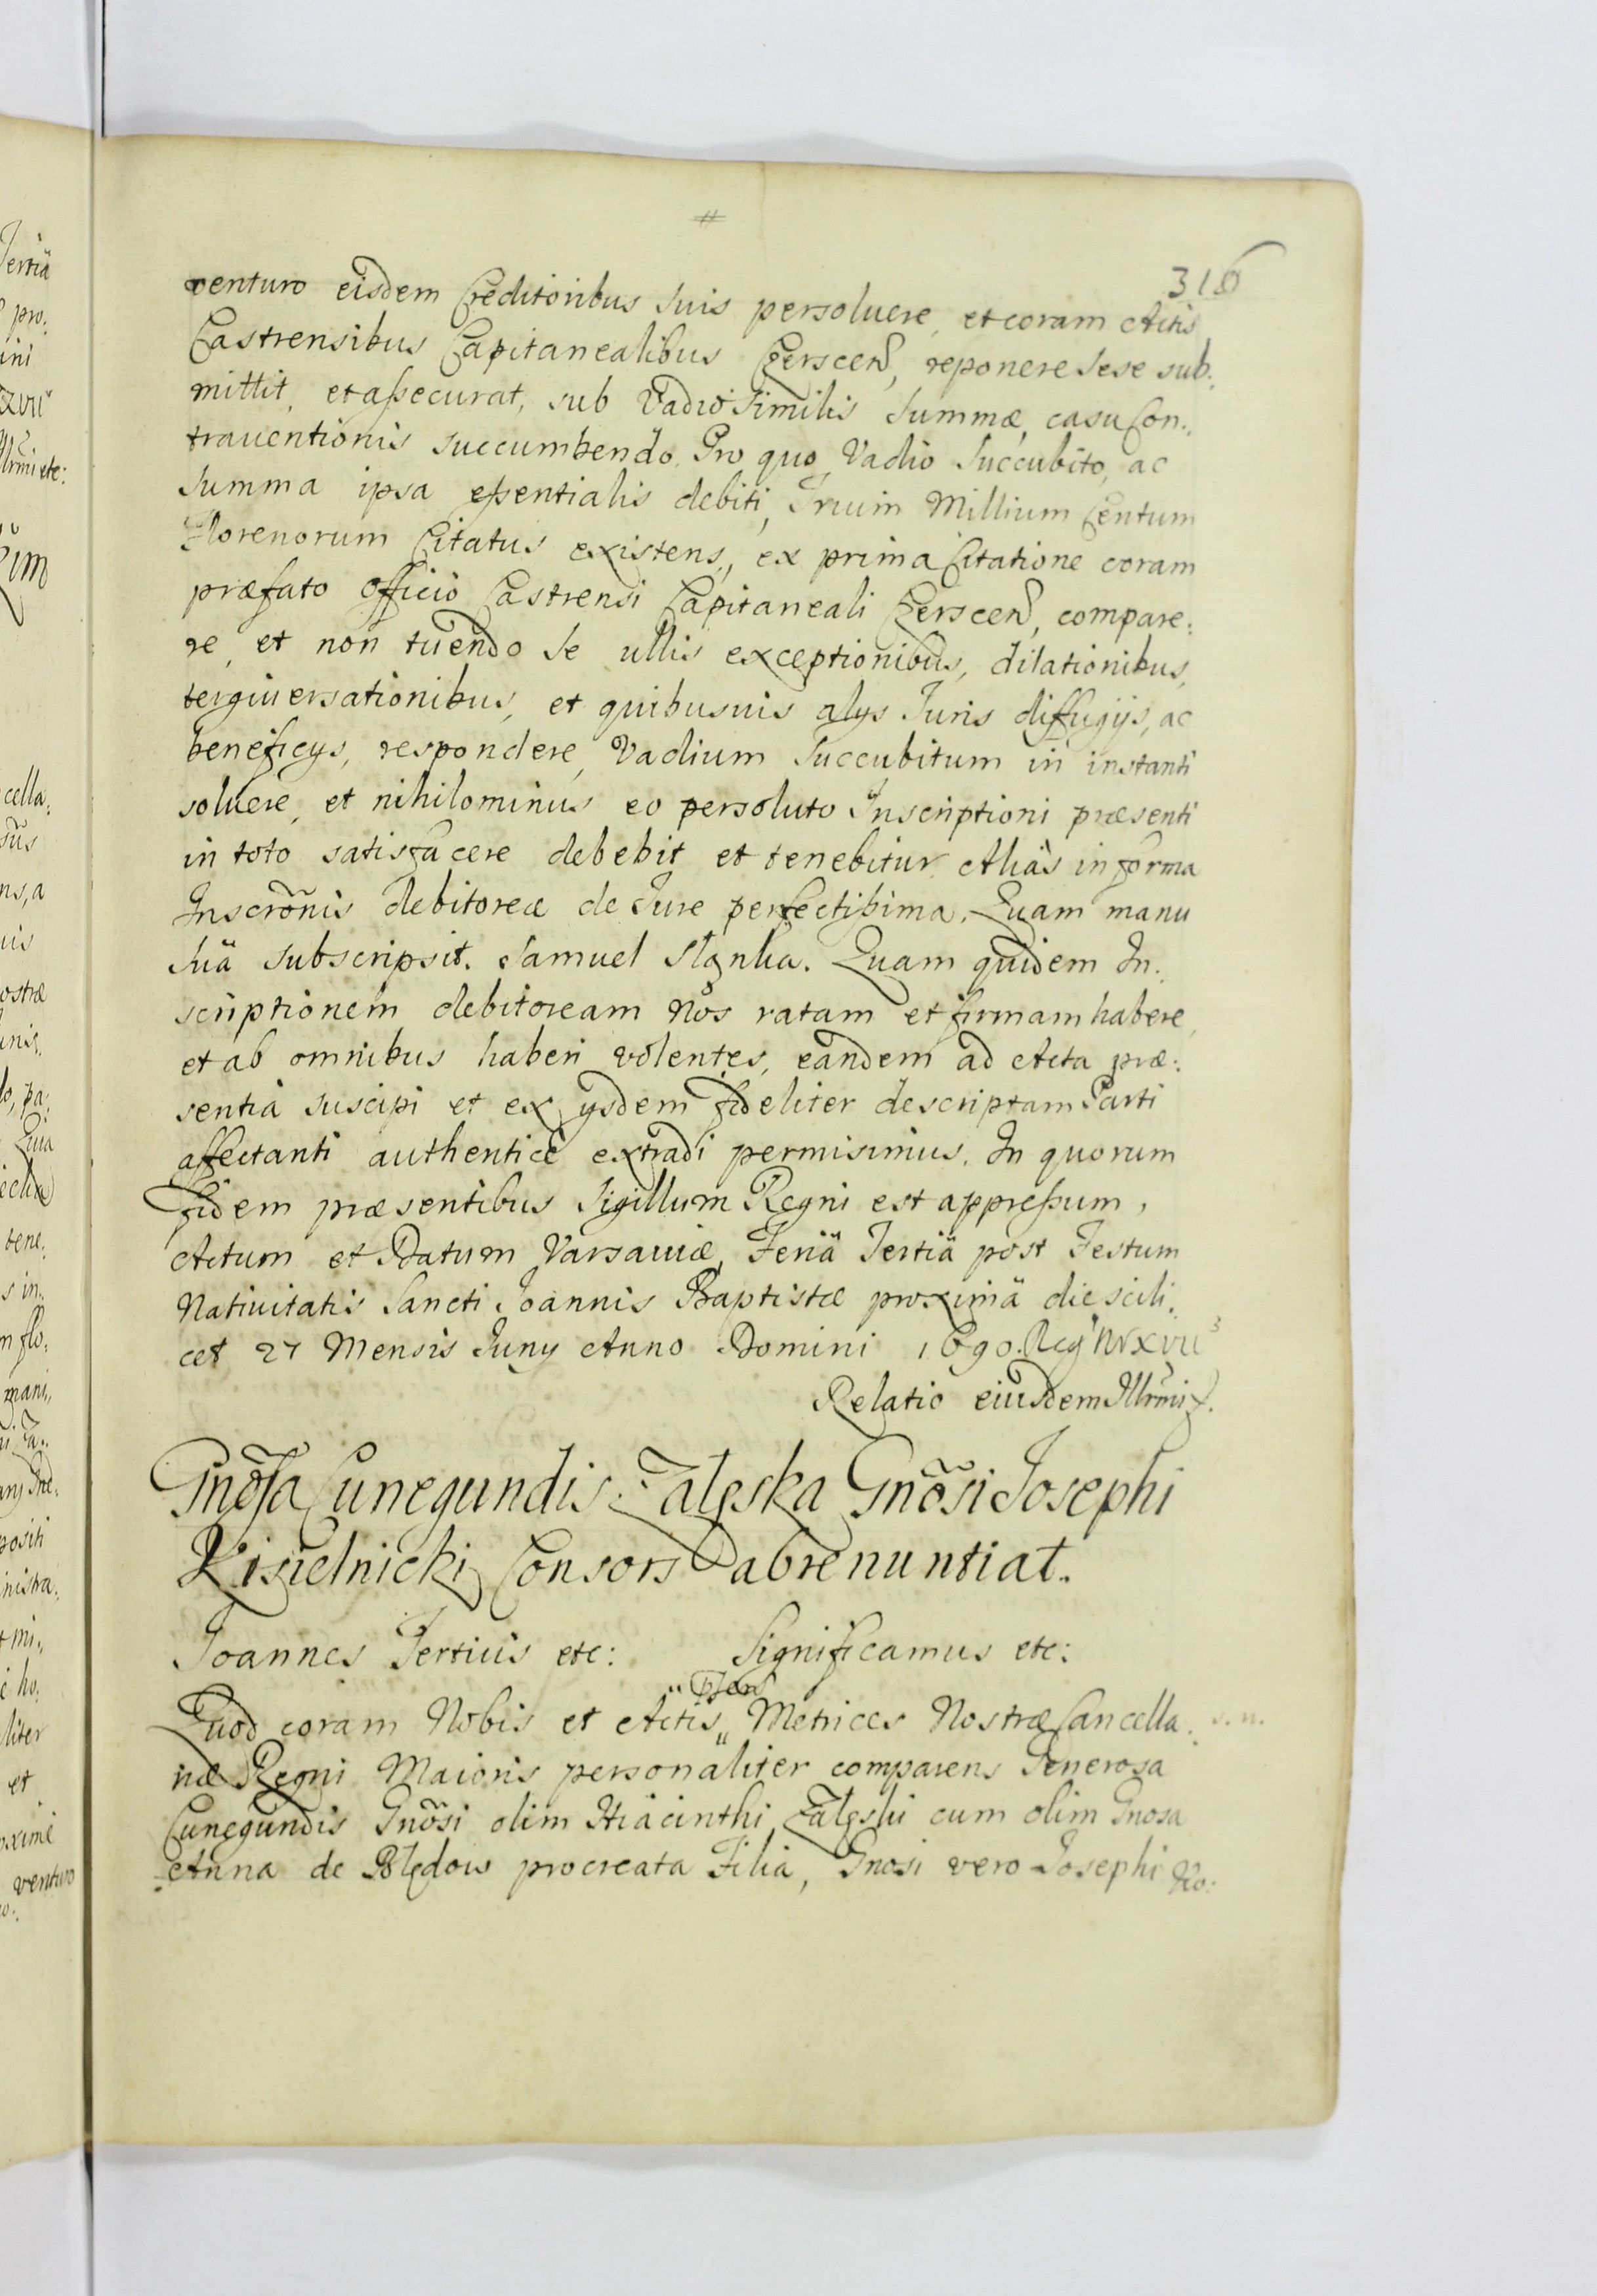 #
316
venturo eisdem Creditoribus suis persoluere, et coram Actis
Castrensibus Capitanealibus Czerscen, reponere sese sub:
mittit, et aßecurat, sub Vadio similis summæ, casu Con:
trauentionis succumbendo. Pro quo Vadio succubito, ac
summa ipsa eßentialis debiti, Trium Millium Centum
Florenorum Citatus existens, ex prima Citatione coram
præfato Officio Castrensi Capitaneali Czerscen, compare:
re, et non tuendo se ullis exceptionibus, dilationibus,
tergiuersationibus, et quibusuis alys Juris diffugijs, ac
beneficys, respondere, Vadium succubitum in instanti
soluere, et nihilominus eo persoluto Inscriptioni præsenti
in toto satisfacere debebit et tenebitur. Aliàs in forma
Inscrõnis debitoreæ de Jure perfectißima. Quam manu
suä subscripsit. Samuel Slanka. Quam quidem In:
scriptionem debitoream Nos ratam et firmam habere,
et ab omnibus haberi volentes, eandem ad Acta præ:
sentia suscipi et ex ysdem fideliter descriptam Parti
affectanti authenticè extradi permisimus. In quorum
fidem præsentibus Sigillum Regni est appreßum.
Actum et Datum Varsauiæ, Feriä Tertiä post Festum
Nativitatis Sancti Joannis Baptistæ proximä die scili:
cet 27 Mensis Juny Anno Domini 1690. Reg N XVII
Relatio eiusdem Illrmi
Gnõsa Cunegundis Zaleska Gnõsi Josephi
Kisielnicki Consors abrenuntiat.
Joannes Tertius etc: Significamus etc:
Quod coram Nobis et Actis Metrices Nostræ Cancella:
riæ Regni Maioris personaliter comparens Generosa
Cunegundis Gnõsi olim Hiacinthi Zaleski cum olim Gnosa
Anna de Bledow procreata Filia, Gnosi vero Josephi